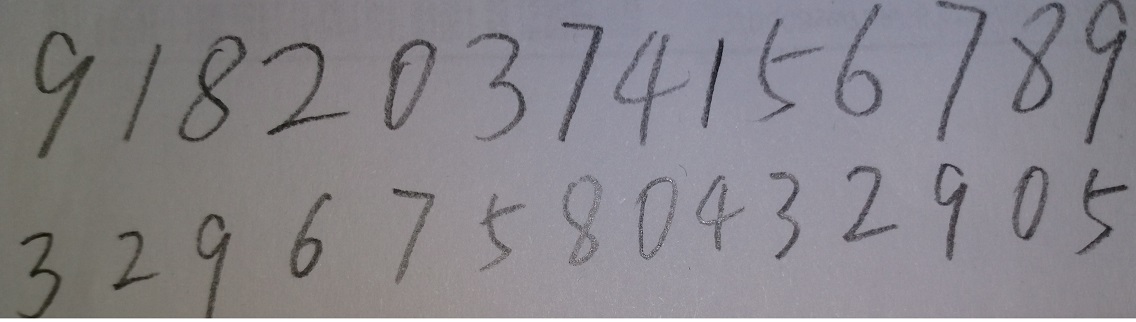 91820374156789
32967580432905